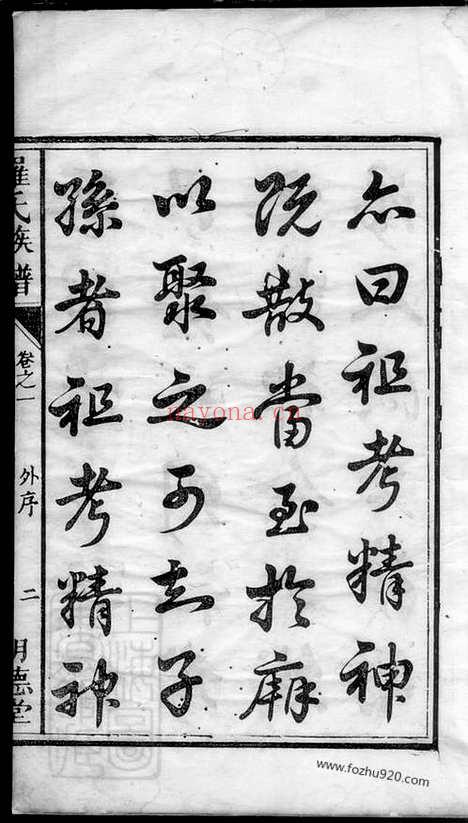 亦曰祖考精神
既散當至於廟
以聚之可知子
孫者祖考精神
羅氏族譜
卷之一
外序
二
明德堂
nayona.cn
www.fozhu920.com